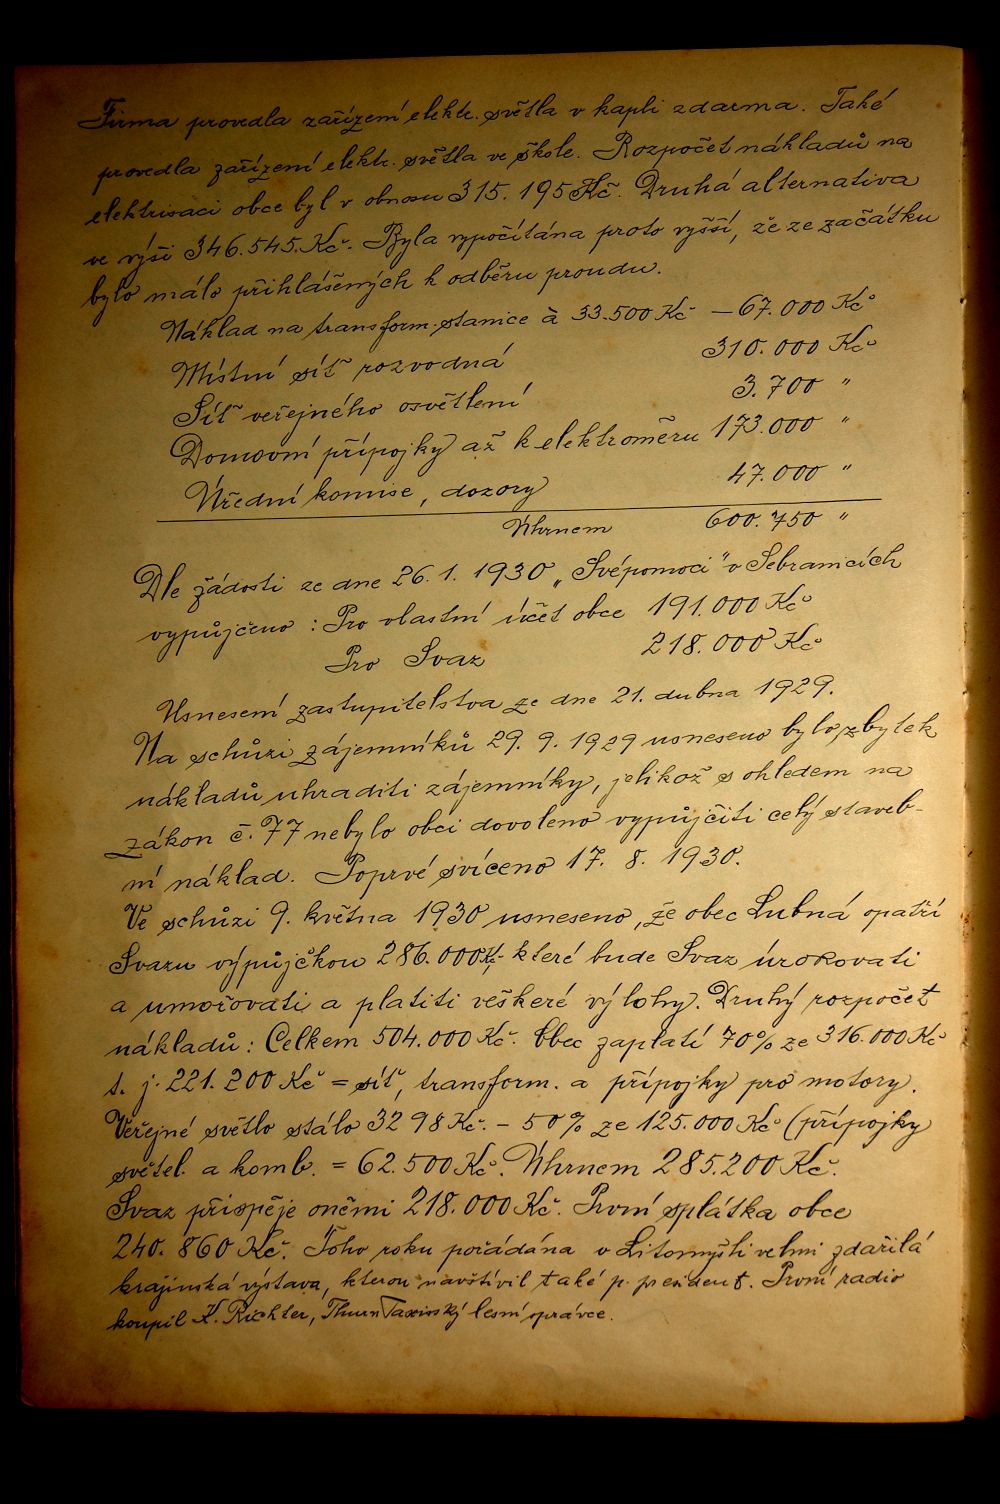 Firma provedla zařízení elektr. světla v kapli zdarma. Také
provedla zařízení elektr. světla ve škole. Rozpočet nákladů na
elektrisaci obce byl v obnosu 315.195 Kč. Druhá alternativa
ve výši 346.545 Kč. Byla vypočítána proto vyšší, že ze začátku
bylo málo přihlášených k odběru proudu.
Náklad na transform. stanice à 33.500 Kč — 67.000 Kč
Místní síť rozvodná 310.000 Kč
Síť veřejného osvětlení 3.700 "
Domovní přípojky až k elektroměru 173.000 "
Úřední komise, dozory 47.000 "
Úhrnem 600.750 "
Dle žádosti ze dne 26. 1. 1930 „Svépomoci" v Sebranicích
vypůjčeno : Pro vlastní účet obce 191.000 Kč
Pro Svaz 218.000 Kč
Usnesení zastupitelstva ze dne 21. dubna 1929.
Na schůzi zájemníků 29. 9. 1929 usneseno bylo, zbytek
nákladů uhraditi zájemníky, jelikož s ohledem na
zákon č. 77 nebylo obci dovoleno vypůjčiti celý staveb-
ní náklad. Poprvé svíceno 17. 8. 1930.
Ve schůzi 9. května 1930 usneseno, že obec Lubná opatří
Svazu výpůjčkou 286.000 Kč, které bude Svaz úrokovati
a umořovati a platiti veškeré výlohy. Druhý rozpočet
nákladů : Celkem 504.000 Kč. Obec zaplatí 70% ze 316.000 Kč
t. j. 221.200 Kč = síť, transform. a přípojky pro motory.
Veřejné světlo stálo 3298 Kč. – 50% ze 125.000 Kč (přípojky
světel. a komb. = 62.500 Kč. Úhrnem 285.200 Kč.
Svaz přispěje oněmi 218.000 Kč. První splátka obce
240.860 Kč. Toho roku pořádána v Litomyšli velmi zdařilá
krajinská výstava, kterou navštívil také p. president. První radio
koupil K. Richter, Thurn Taxisský lesní správce.